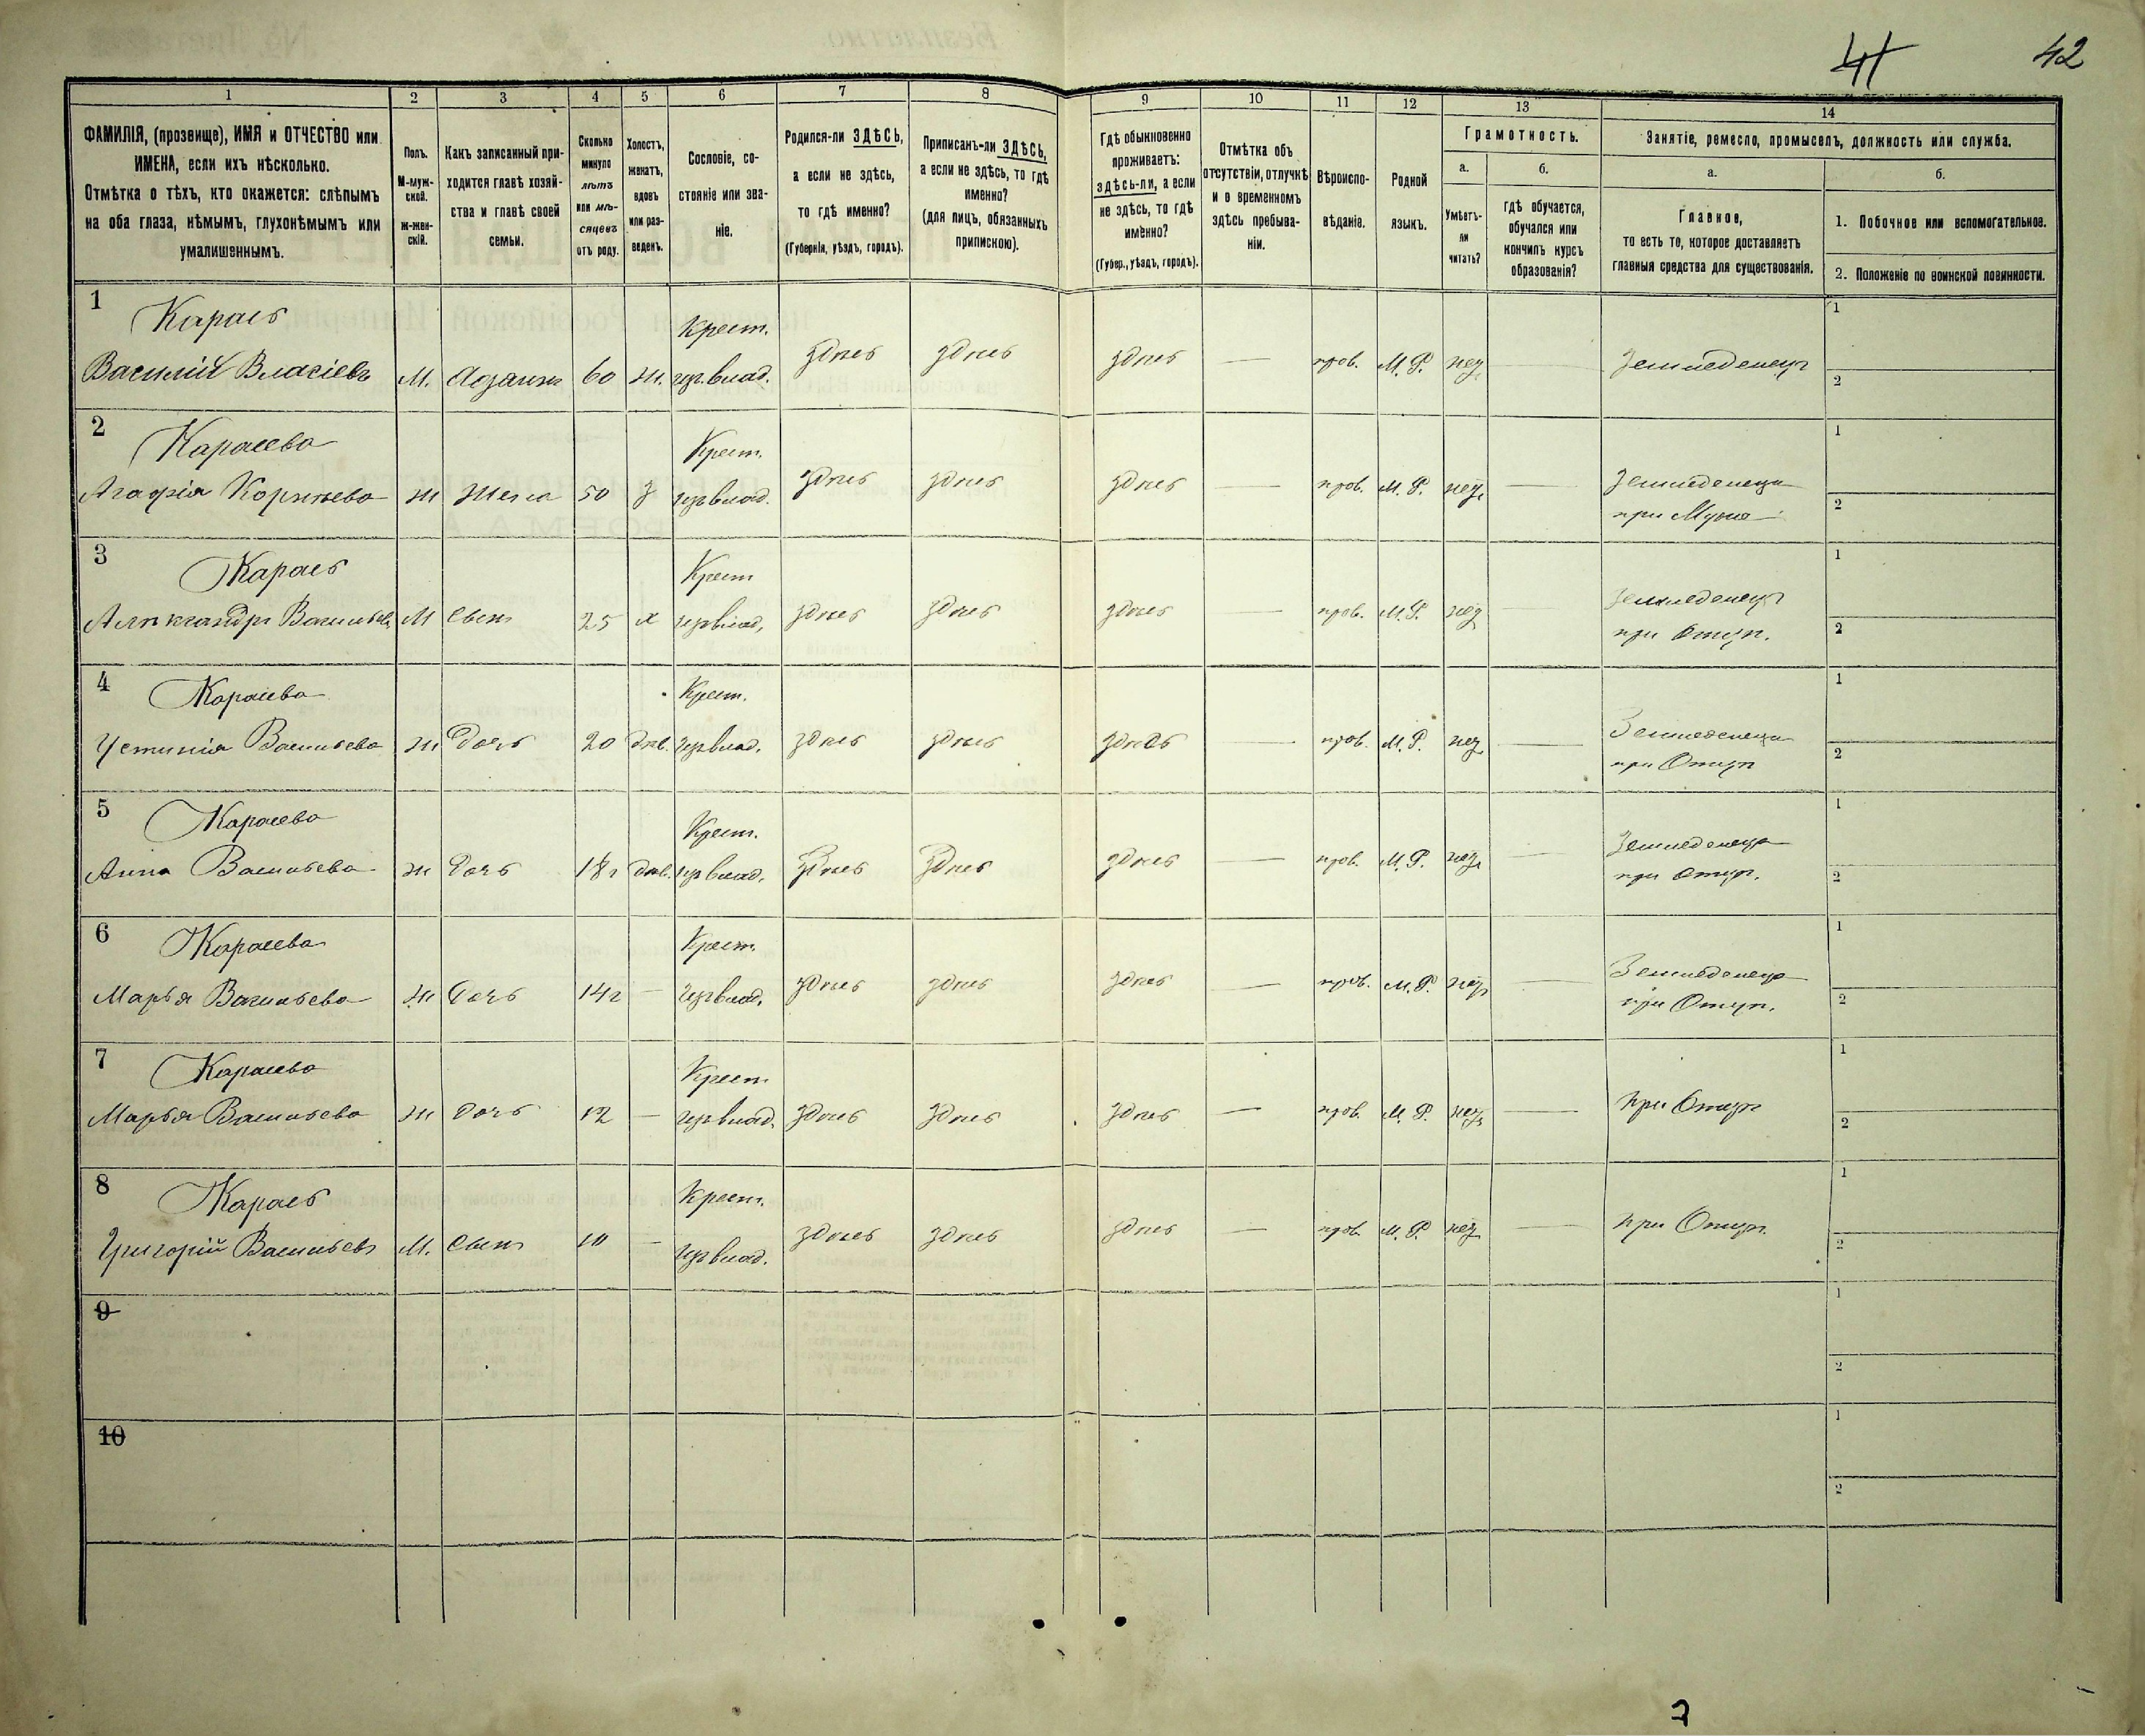 41
42
1 2 3 4 5 6 7 8 9 10 11 12 13 14
ФАМИЛІЯ, (прозвище), ИМЯ и ОТЧЕСТВО или
ИМЕНА, если ихъ нѣсколько.
Отмѣтка о тѣхъ, кто окажется: слѣпымъ
на оба глаза, нѣмымъ, глухонѣмымъ или
умалишеннымъ.
Полъ.
М-муж-
ской.
Ж-жен-
скій.
Какъ записанный при-
ходится главѣ хозяй-
ства и главѣ своей
семьи.
Сколько
минуло
лѣтъ
или мѣ-
сяцевъ
отъ роду.
Холостъ,
женатъ,
вдовъ
или раз-
веденъ.
Сословіе, со-
стояніе или зва-
ніе.
Родился-ли ЗДѢСЬ,
а если не здѣсь,
то гдѣ именно?
(Губернія, уѣздъ, городъ).
Приписанъ-ли ЗДѢСЬ,
а если не здѣсь, то гдѣ
именно?
(для лицъ, обязанныхъ
припискою).
Гдѣ обыкновенно
проживаетъ:
здѣсь-ли, а если
не здѣсь, то гдѣ
именно?
(Губер., уѣздъ, городъ).
Отмѣтка объ
отсутствіи, отлучкѣ
и о временномъ
здѣсь пребыва-
ніи.
Вѣроиспо-
вѣданіе.
Родной
языкъ.
Грамотность.
а.
Умѣетъ-
ли
читать?
б.
гдѣ обучается,
обучался или
кончилъ курсъ
образованія?
Занятіе, ремесло, промыселъ, должность или служба.
а.
Главное,
то есть то, которое доставляетъ
главныя средства для существованія.
б.
1. Побочное или вспомогательное.
2. Положеніе по воинской повинности.
1 Карась Крест. 1
Василій Власіевъ М. Хозяинъ 60 ж. здѣсь здѣсь здѣсь — прав. М. Р. Земледѣлецъ 2
2 Карасева Крест. 1
Агафія Корнѣева ж Жена 50 з здѣсь здѣсь здѣсь — прав. М. Р. — Земледѣлица 2
при Мужѣ
3 Карась Крест 1
Александръ Васильевъ М Сынъ 25 х здѣсь здѣсь здѣсь — прав. М. Р. Земледѣлецъ 2
при Отцѣ.
4 Карасева Крест. 1
Устинія Васильева ж Дочь 20 дѣв. здѣсь здѣсь здѣсь — прав. М. Р. — Земледѣлица 2
при Отцѣ
5 Карасева Крест. 1
Анна Васильева ж Дочь 18 дѣв. здѣсь здѣсь здѣсь — прав. М. Р. — Земледѣлица 2
при Отцѣ.
6 Карасева Крест. 1
Марья Васильева ж Дочь 14 — здѣсь здѣсь здѣсь — прав. М. Р. — Земледѣлица 2
при Отцѣ.
7 Карасева Крест. 1
Марья Васильева ж Дочь 12 — здѣсь здѣсь здѣсь — прав. М. Р. — при Отцѣ 2
8 Карась Крест. 1
Григорій Васильевъ М. Сынъ 10 — здѣсь здѣсь здѣсь — прав. М. Р. — при Отцѣ. 2
9 1
2
10 1
2